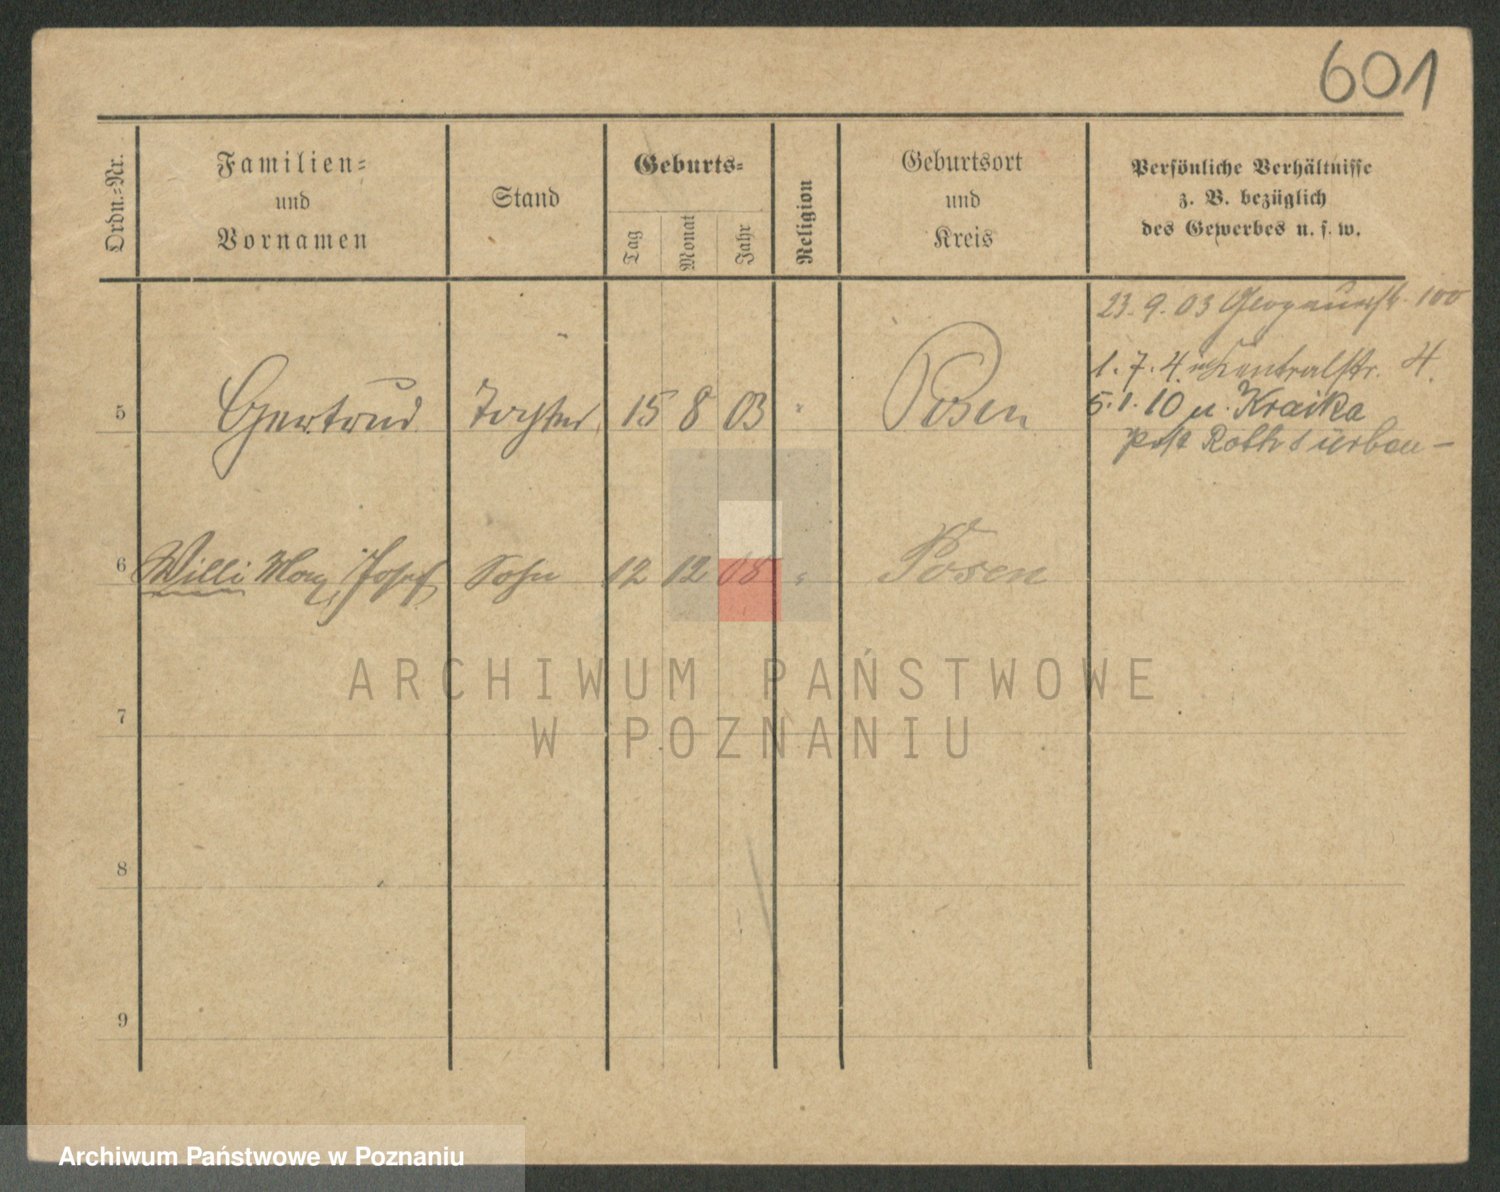 601
Ordn.-Nr.
Familien-
und
Vornamen
Stand
Geburts-
Tag
Monat
Jahr
Religion
Geburtsort
und
Kreis
Persönliche Verhältnisse
z. B. bezüglich
des Gewerbes u. s. w.
23. 9. 03 Glogauerstr. 100
1. 7. 4. Zentralstr. 4.
5 Gertrud Tochter 15 8 03 " Posen
5. 1. 10 u. Kraika
post
6 Willi Max Josef Sohn 12 12 08 " Posen
7
8
9
ARCHIWUM PAŃSTWOWE
W POZNANIU
Archiwum Państwowe w Poznaniu